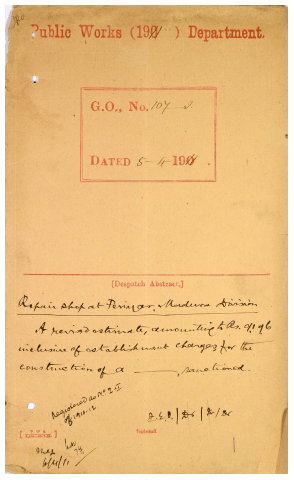 Public Works (1911) Department.
G.O., No. 107
DATED 5-4-1911
[Despatch Abstract.]
Repair shop at Periyar, Madura Division
A revised estimate, amounting to Rs. 9196
inclusive of establishment charges for the
construction of a — sanctioned.
Registered as No. 2-I
of 1911-12